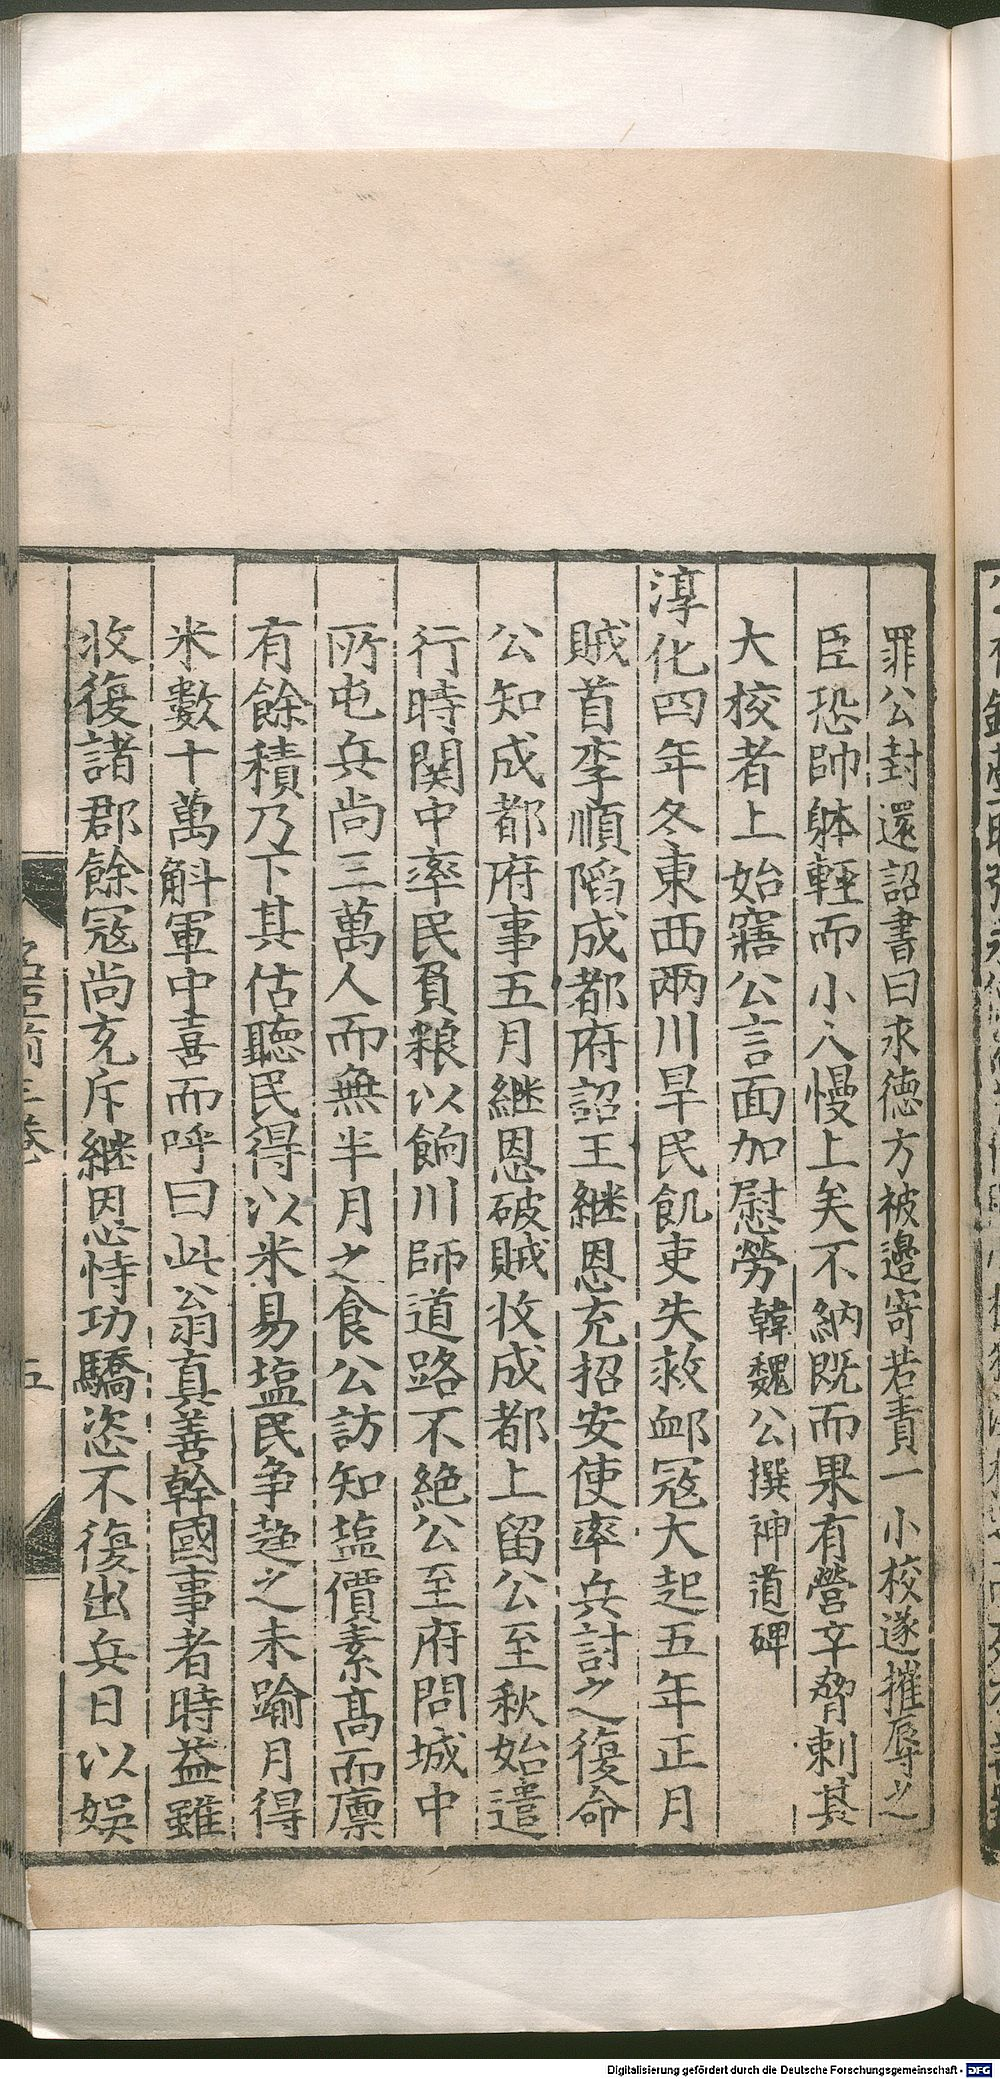 罪公封還詔書曰永德方被邊寄若責一小校遂摧辱之
臣恐帥躰輕而小人慢上矣不納既而果有營卒脅刺其
大校者上始寤公言面加慰勞韓魏公撰神道碑
淳化四年冬東西兩川旱民飢吏失救䘏冦大起五年正月
賊首李順䧟成都府詔王継恩充招安使率兵討之復命
公知成都府事五月継恩破賊收成都上留公至秋始遣
行時関中率民負粮以餉川師道路不絶公至府問城中
所屯兵尚三萬人而無半月之食公訪知塩價素高而廪
有餘積乃下其估聽民得以米易塩民争趍之未踰月得
米數十萬斛軍中喜而呼曰此翁真善幹國事者時益雖
收復諸郡餘冦尚充斥継恩恃功驕恣不復出兵日以娛
五
Digitalisierung gefördert durch die Deutsche Forschungsgemeinschaft - DFG